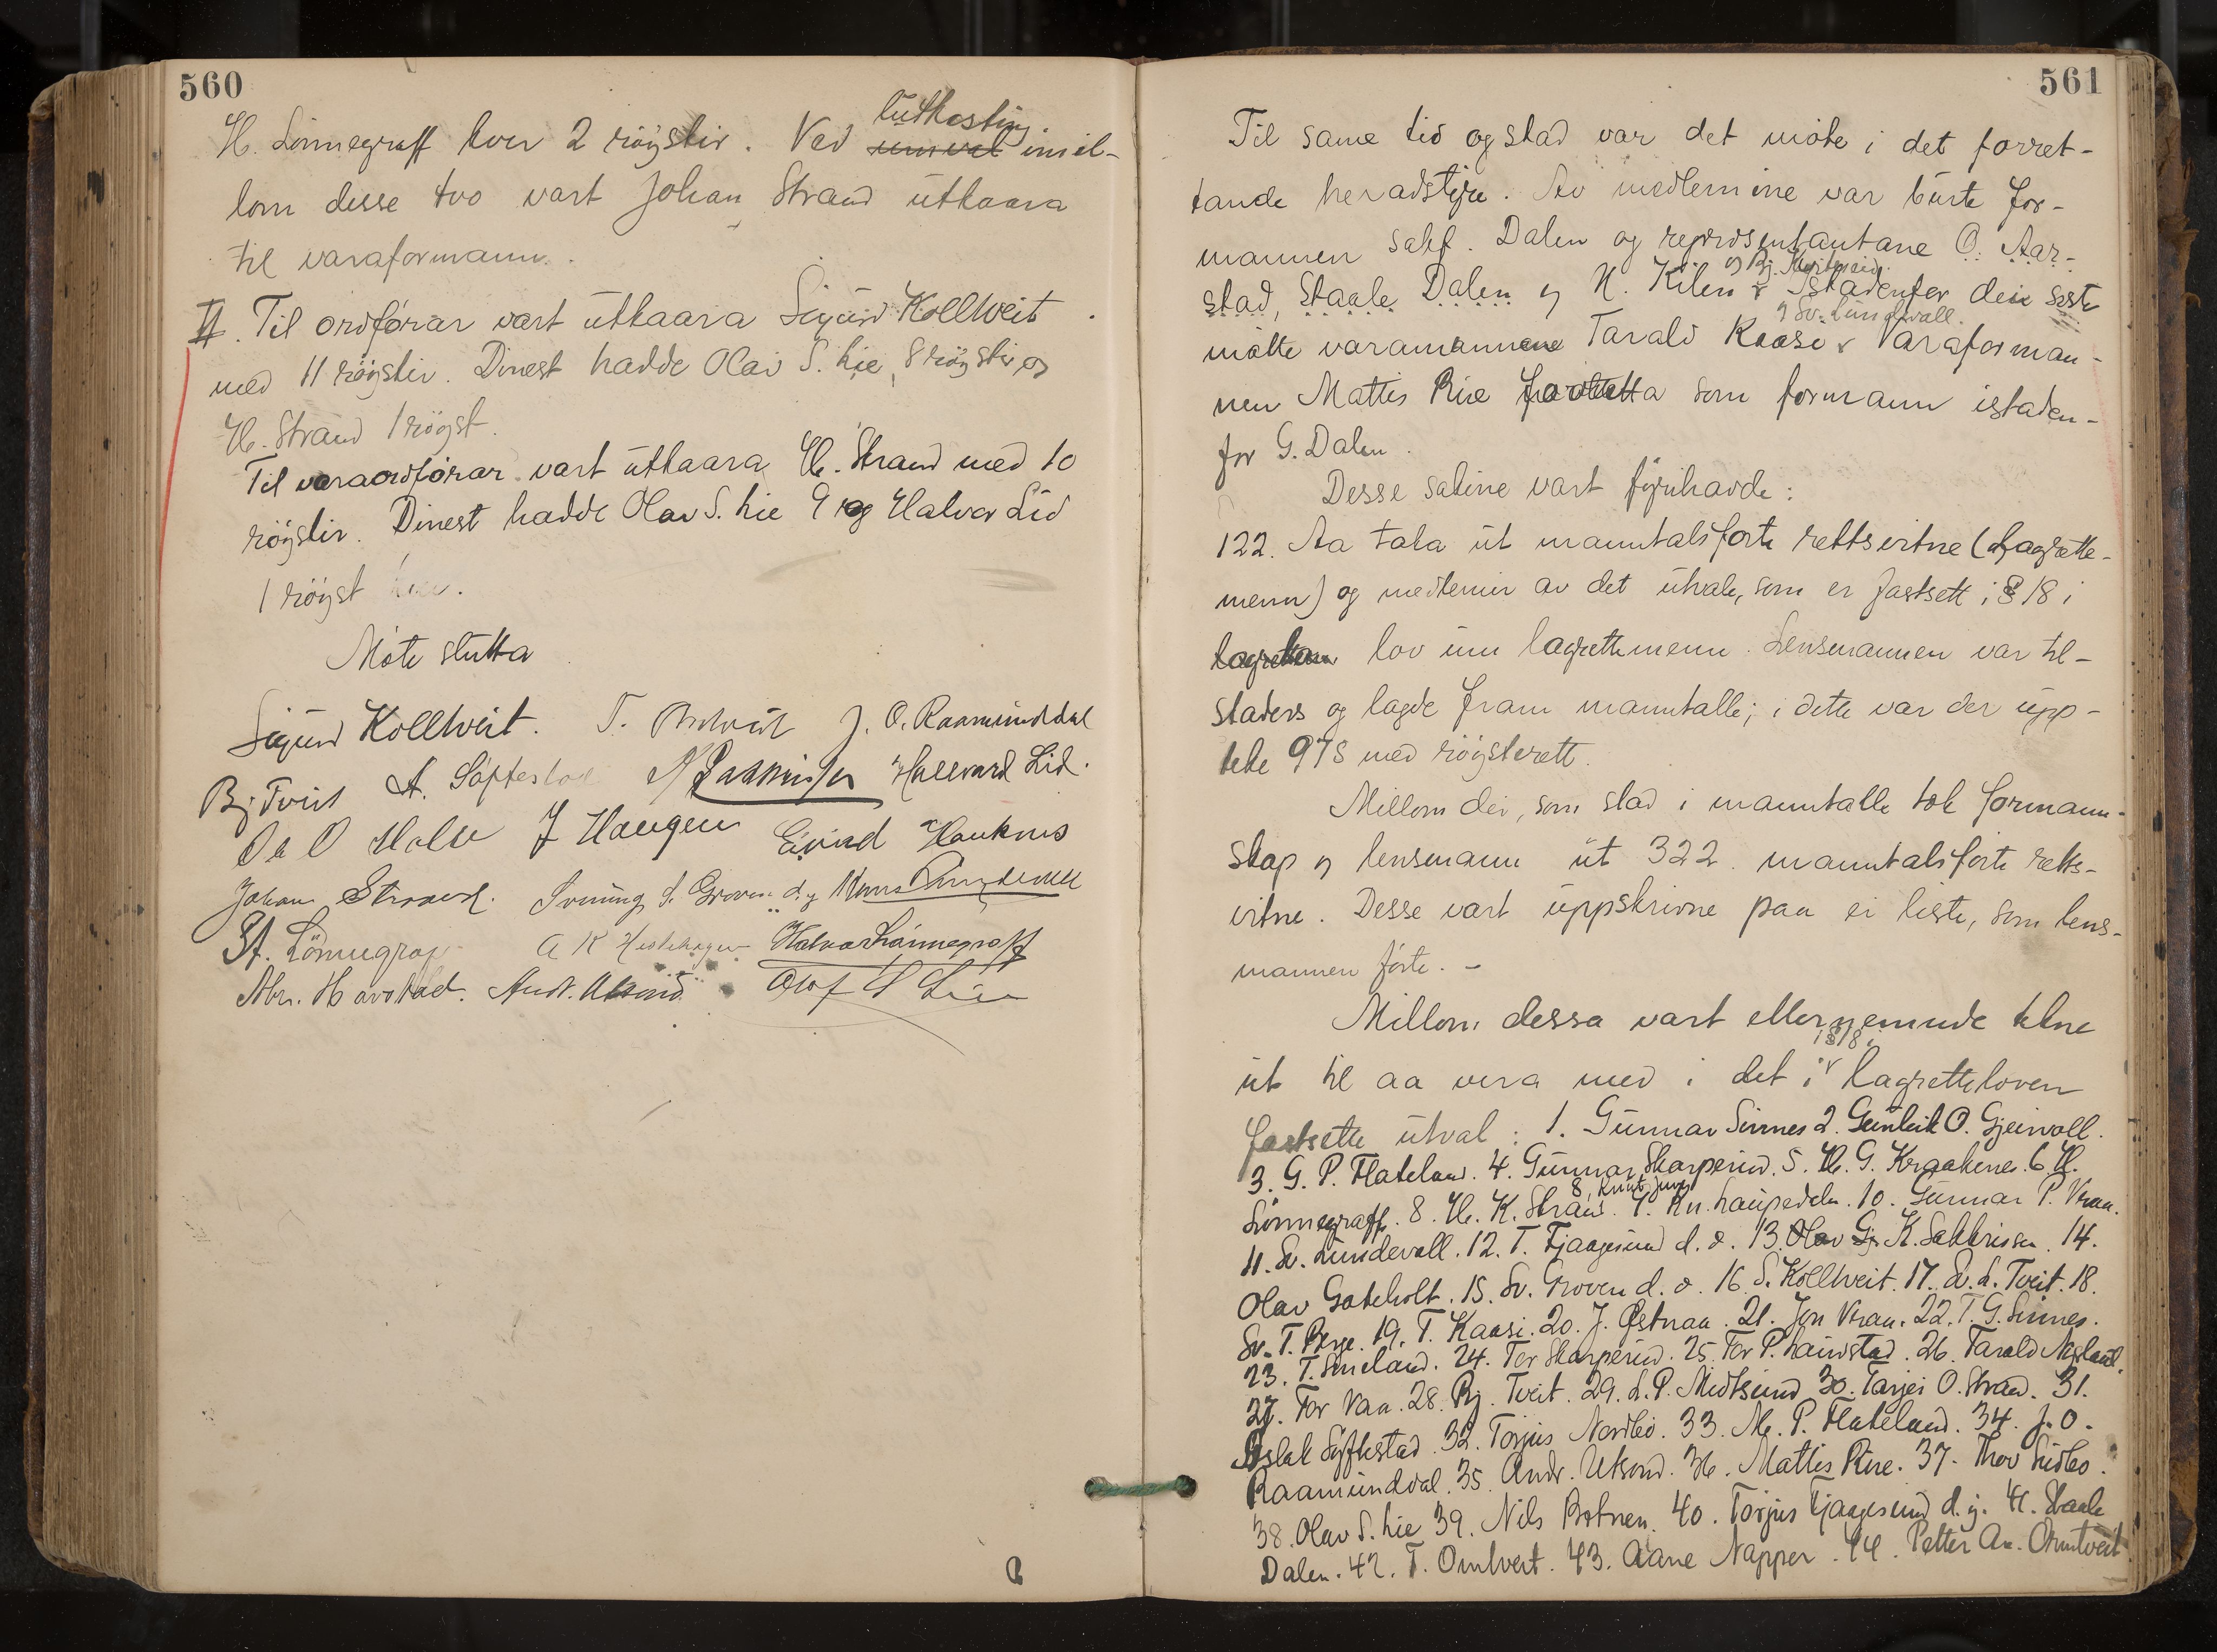 560
lutkasting
H. Lönnegraff kver 2 röyster. Ved umval imil-
lom desse tvo vart Johan Strand utkaara
til varaformann.
II. Til ordförar vart utkaara Sigurd Kolltveit
med 11 röyster. Dinest hadde Olav S. Lie 8 röyster og
H. Strand 1 röyst.
Til varaordförar vart utkaara H. Strand med 10
röyster. Dinest hadde Olav S. Lie 9 og Halvor Lid
1 röyst
Möte slutta
Sigurd Kolltveit. T. Omtveit J. O. Raamunddal
Bj Tveit A. Söftestad Hallvard Lid.
J Haugen Eivind Hauknes
Johan Strand. Sveinung S. Groven d.y Hans Lundevall
St. Lönnegrav A K Heslehagen Halvor Lönnegraff
Abr. Havstad. Andr. Utsond Olaf S Lie
561
Til same tid og stad var det möte i det forret-
tande heradstyre. Av medlemine var burte for-
mannen Salif. Dalen og representantane O. Aar-
og Bj.
stad, Staale Dalen og N. Kilen Istadenfor dei siste
og Sv. Lundevall.
mötte varamannen Tarald Kaasi Varaforman-
nen Mattis Rue som formann istaden-
for G. Dalen.
Desse sakine vart fyrihavde:
122. Aa taka ut manntalsförte rettsvitne (Lagrette-
menn) og medlemir av det utvale, som er fastsett i § 18 i
lov um lagrettemenn. Lensmannen var til-
stades og lagde fram manntalle; i dette var der upp-
teke 978 med röysterett.
Millom dei, som stod i manntalle tok formann-
skap og lensmann ut 322 manntalsförte retts-
vitne. Desse vart uppskrivne paa ei liste, som lens-
mannen förte. -
Millom dessa vart ellernemnde tekne
i § 18
ut til aa vera med i det i lagretteloven
fastsette utval: 1. Gunnar Sinnes 2. Gunleik O. Gjeivoll.
3. G. P. Flateland. 4. Gunnar Skarperud. 5. H. G. Kraakenes. 6. H.
8. Knut Juvej
Lönnegraff. 8. H. K. Strand. 9. Kn. Haugedalen. 10. Gunnar P. Vraa.
11. Sv. Lundevall. 12. T. Fjaagesund d. e. 13. Olav Gj. K. Sakkrissen. 14.
Olav Gateholt. 15. Sv. Groven d. e. 16. S. Kolltveit. 17. Sv. L. Tveit. 18.
Sv. T. Berge. 19. T. Kaasi. 20. J. Østraa. 21. Jon Vraa. 22. T. G. Sinnes.
23. T. Smeland. 24. Tor Skarperud. 25. Tor P. Haurstad. 26. Tarald Nesland.
27. Tor Vaa. 28. Bj. Tveit. 29. L. P. Midtsund 30. Tarjei O. Strand. 31.
Aslak Söftestad. 32. Torjus Nordbö. 33. M. P. Flateland. 34. J. O.
Raamunddal. 35. Andr. Utsond. 36. Mattis Rue. 37. Thov Sudbö.
38. Olav S. Lie 39. Nils Botnen. 40. Torjus Fjaagesund d. y. 41. Staale
Dalen. 42. T. Omtveit. 43. Aane Napper. 44. Petter An. Omtveit